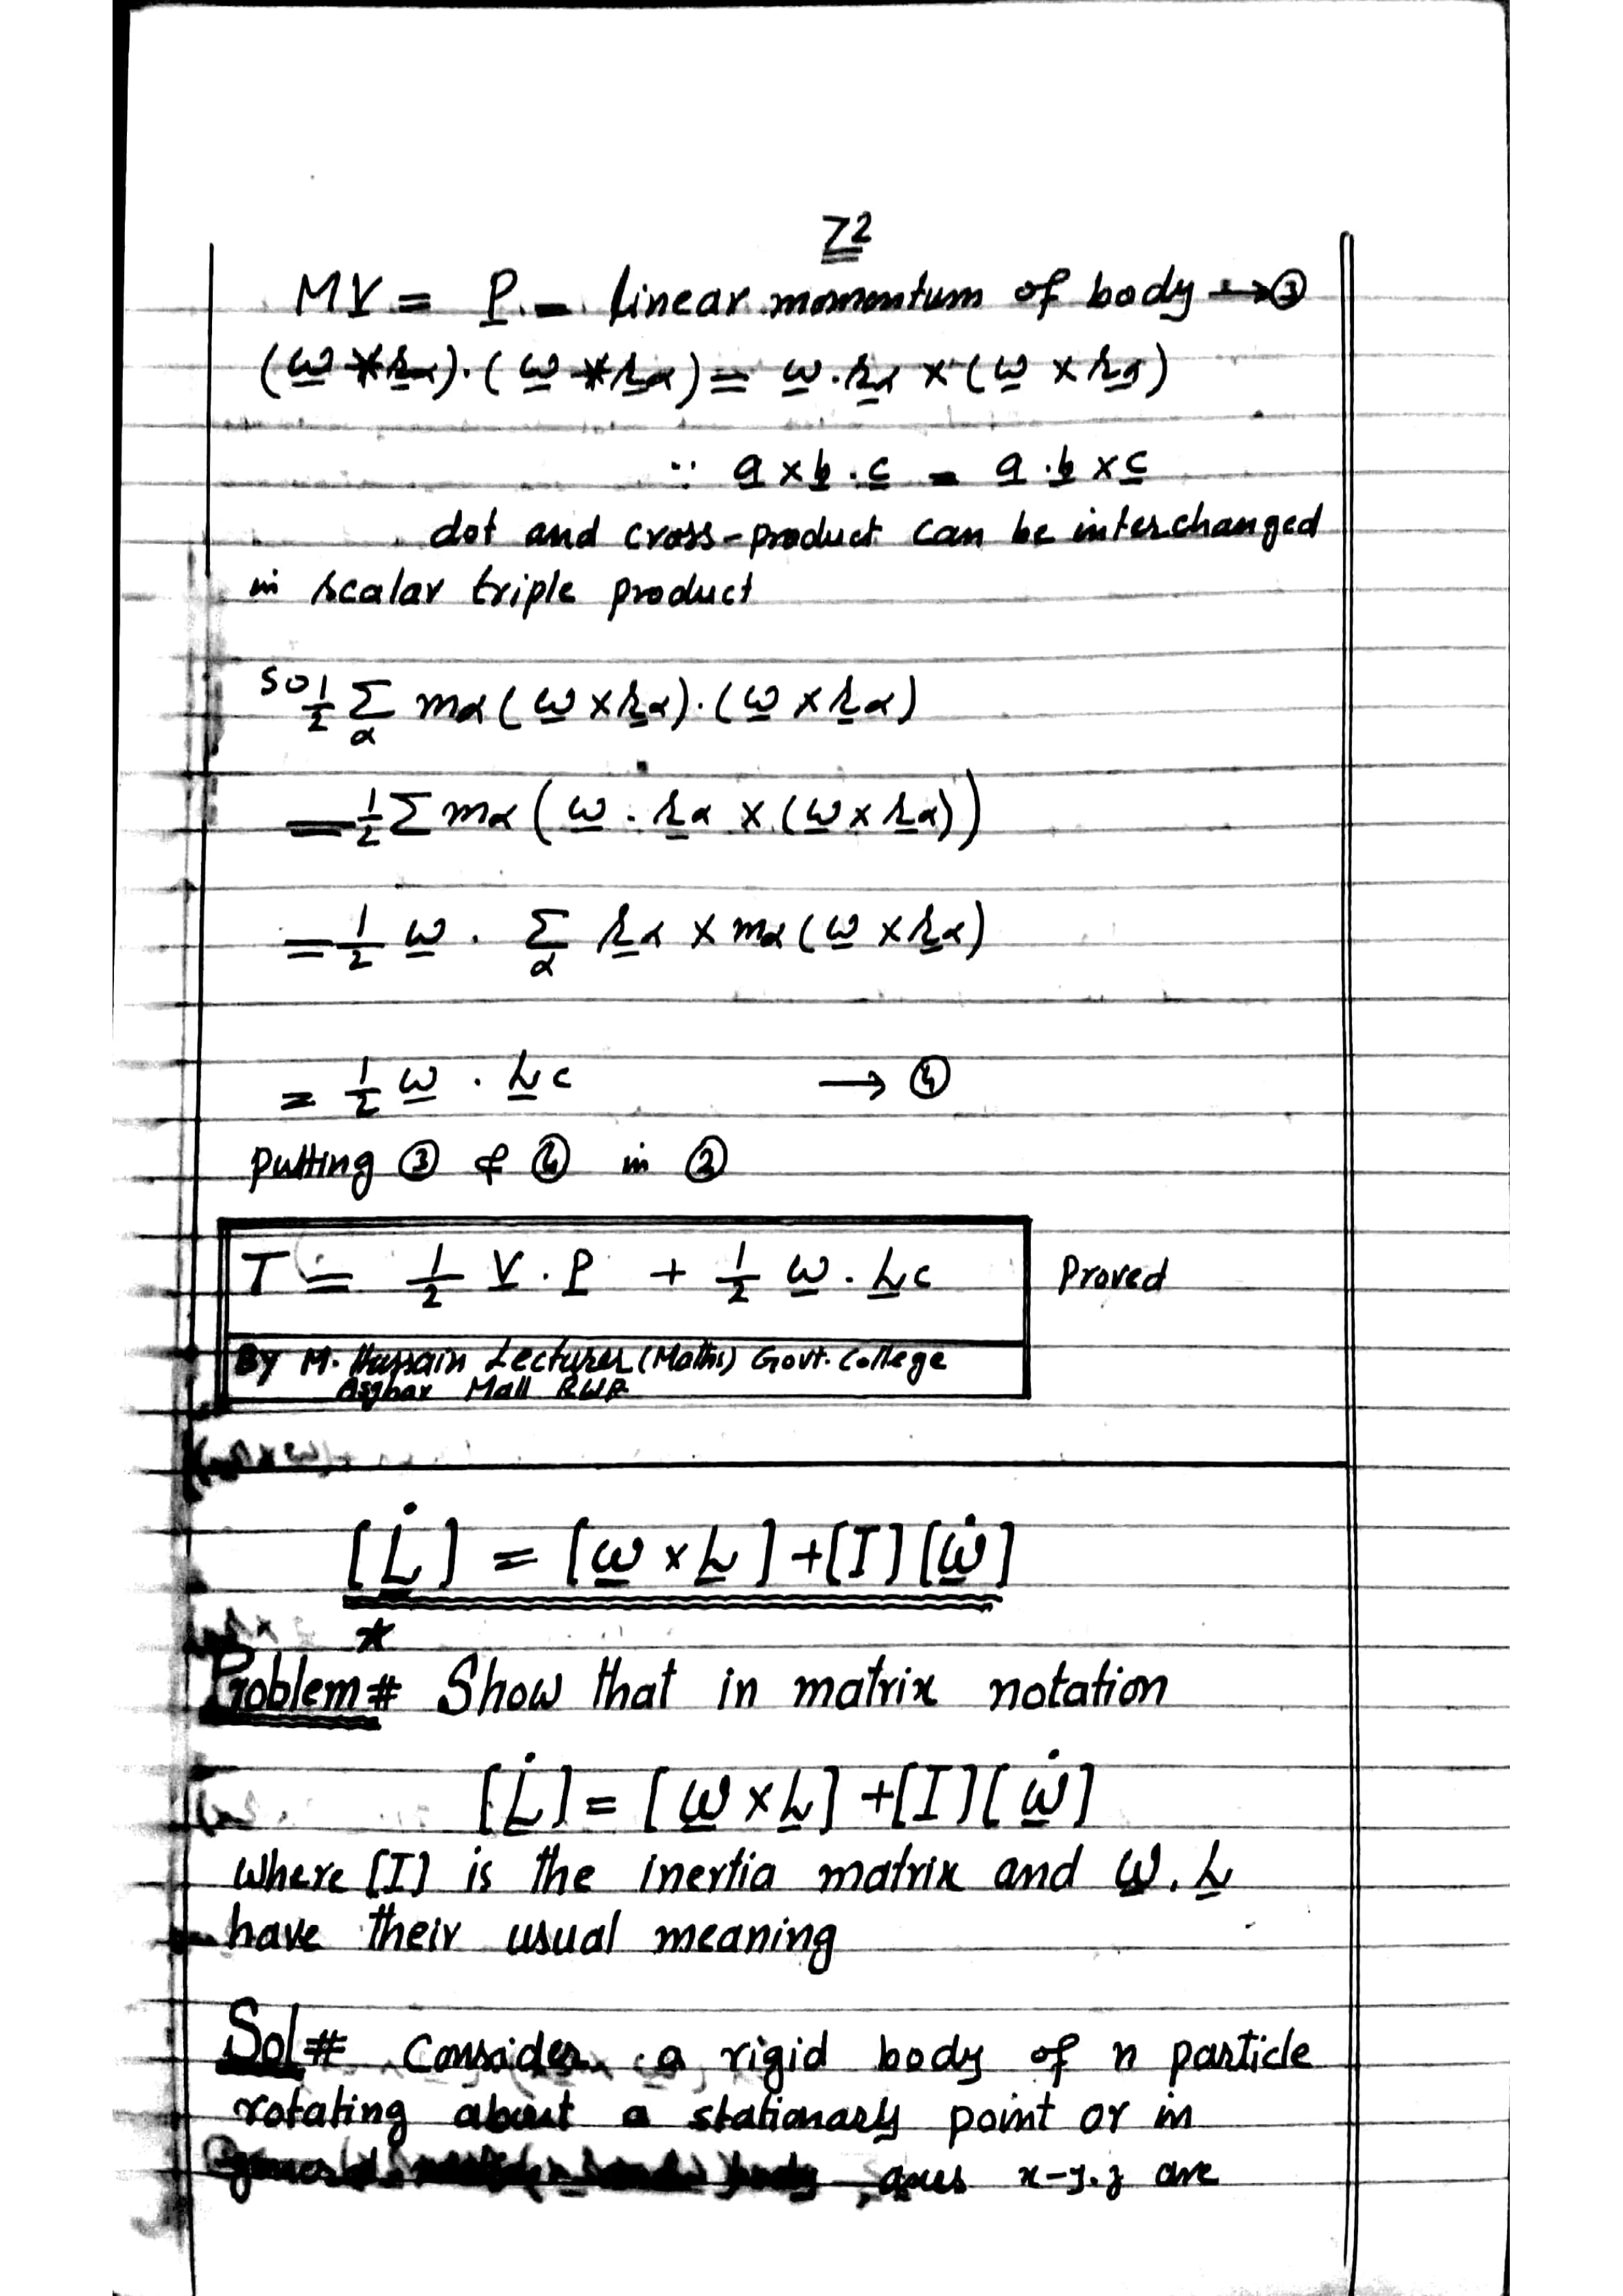 72
MV = P = linear momentum of body → ③
(ω × rα).(ω × rα) = ω.rα × (ω × rα)
∵ a × b . c = a . b × c
dot and cross-product can be interchanged
in scalar triple product
so ½ Σα mα(ω × rα).(ω × rα)
= ½ Σ mα(ω . rα × (ω × rα))
= ½ ω . Σα rα × mα(ω × rα)
= ½ ω . Lc → ④
putting ③ & ④ in ②
T = ½ V . P + ½ ω . Lc Proved
By M. Hussain Lecturer (Maths) Govt. College
Asghar Mall RWP
[L̇] = [ω × L] + [I][ω̇]
*
Problem # Show that in matrix notation
[L̇] = [ω × L] + [I][ω̇]
where [I] is the inertia matrix and ω, L
have their usual meaning
Sol # Consider a rigid body of n particle
rotating about a stationary point or in
, axes x-y.z are